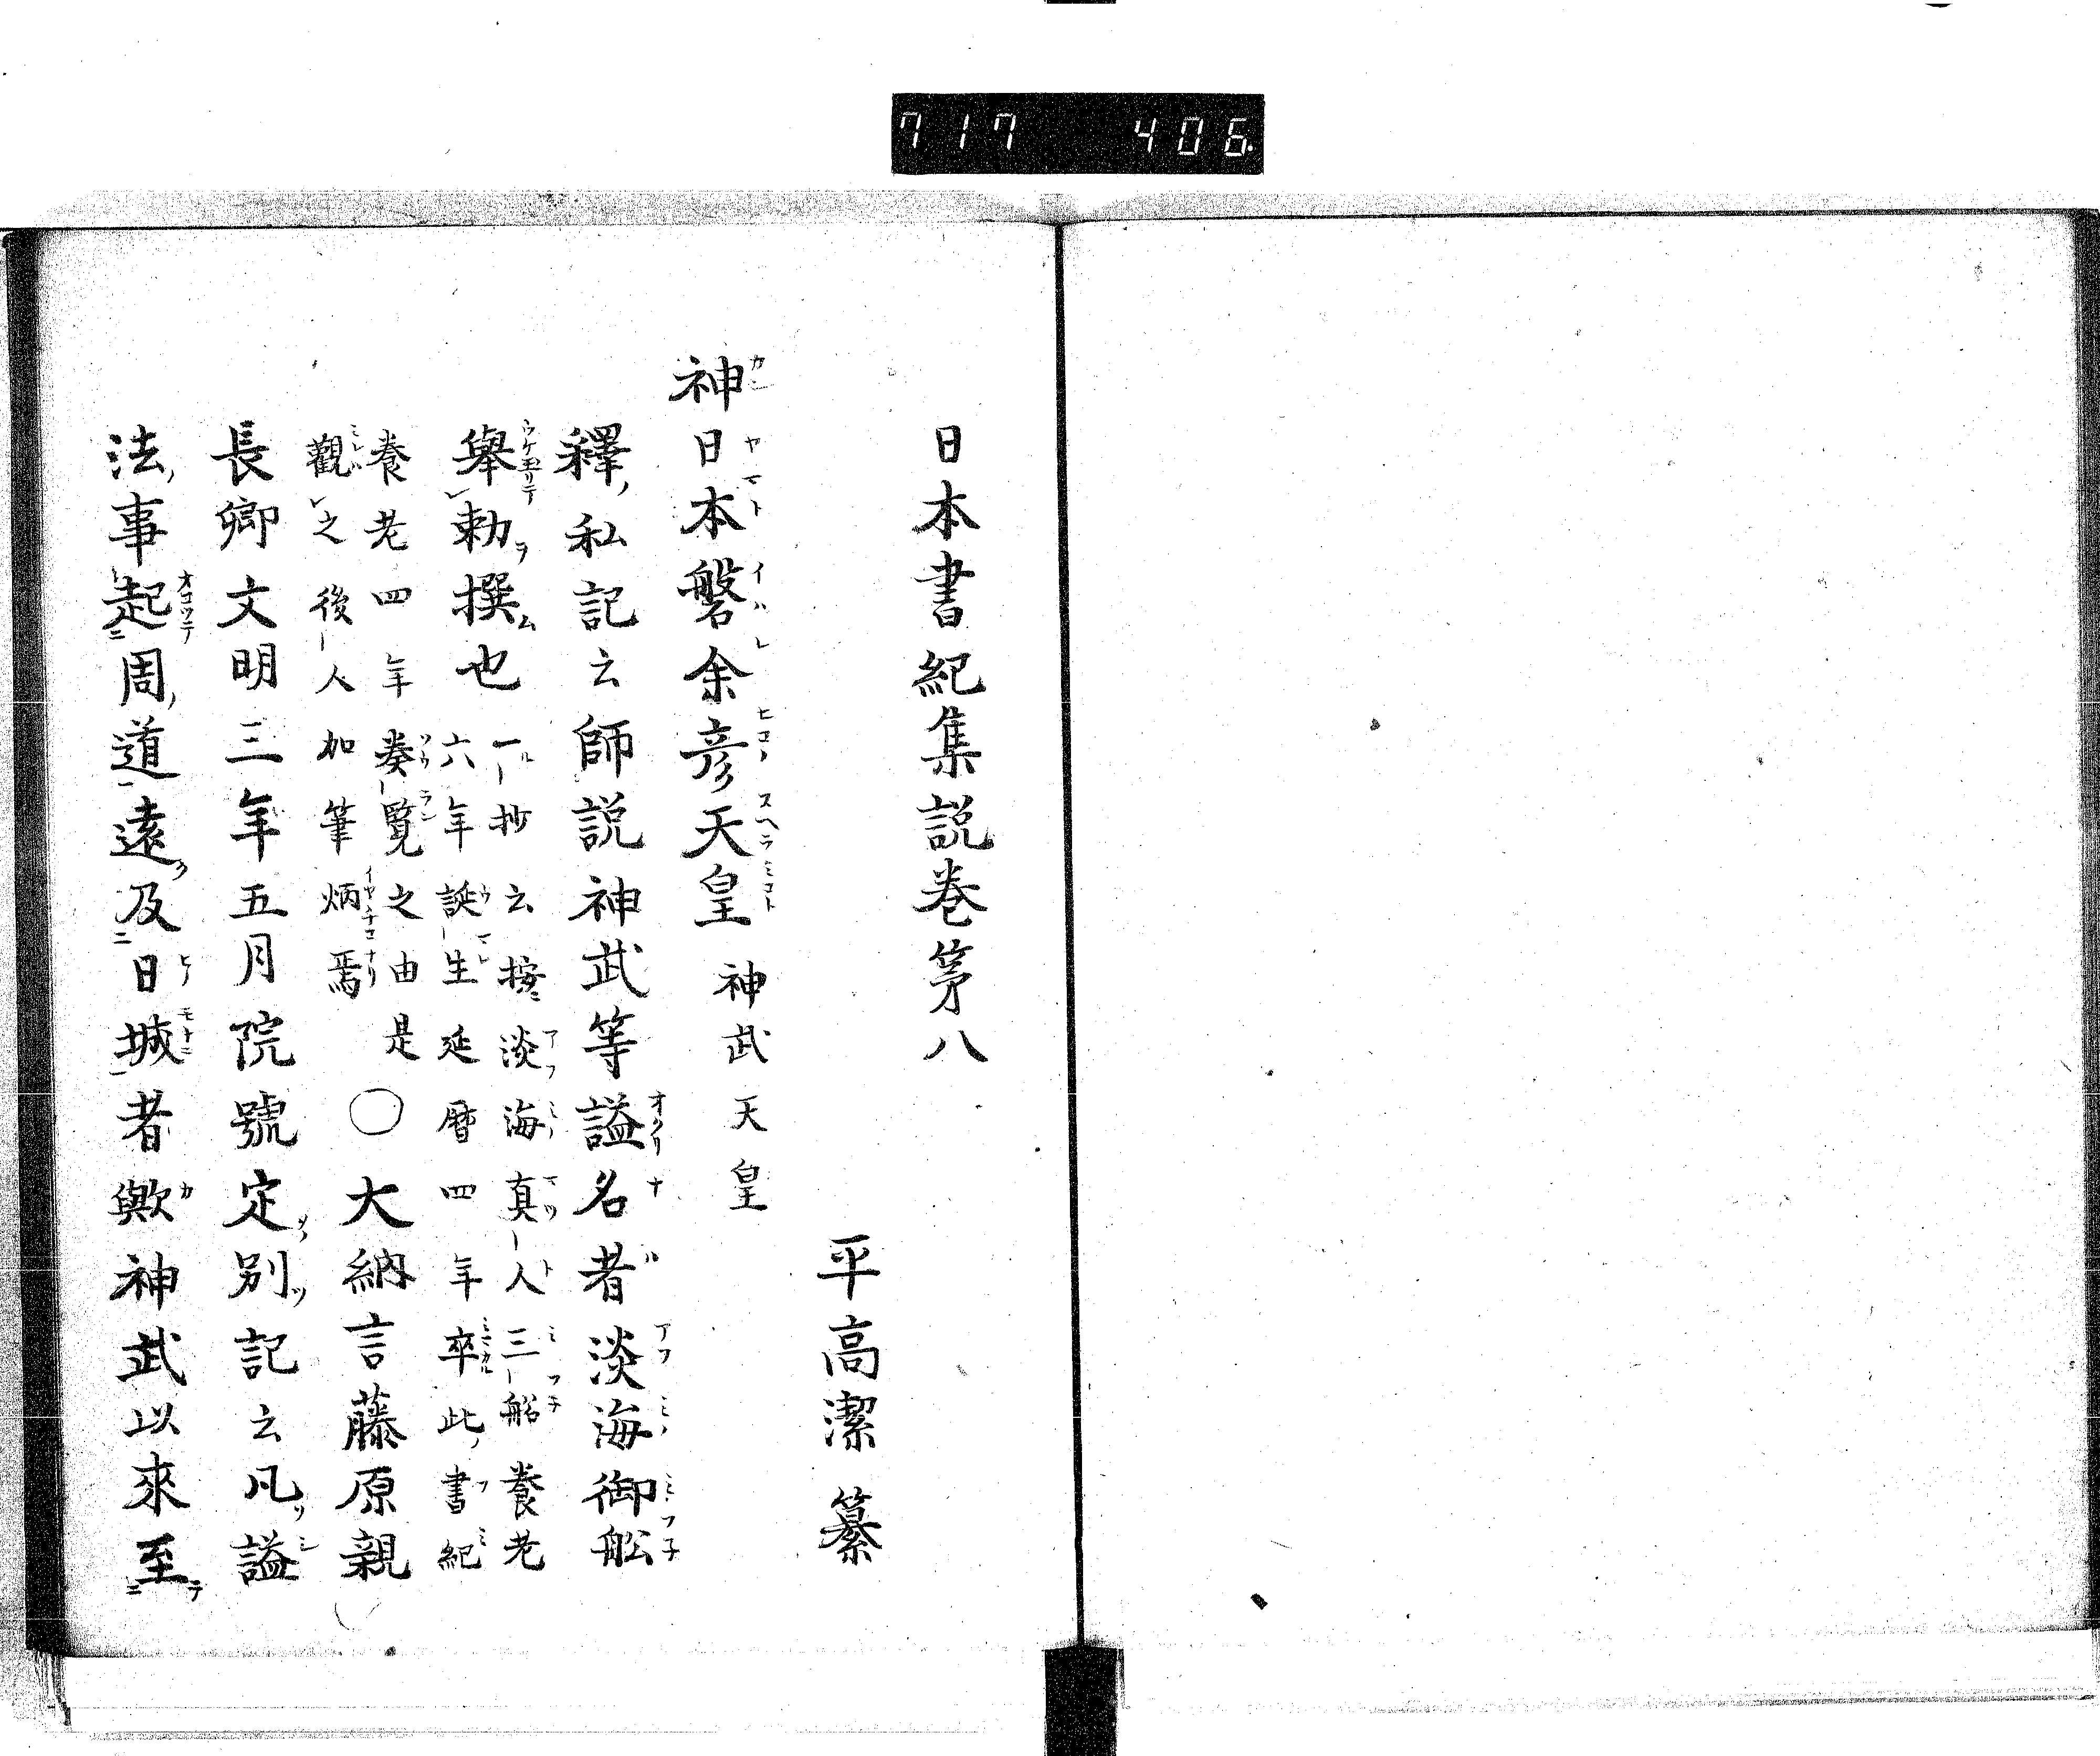 717 406
日本書紀集説巻第八
平高潔 纂
神日本磐余彦天皇 神武天皇
釋私記云師説神武等謚名者淡海御舩
舉勅撰也
一抄云按淡海真人三船養老
六年誕生延暦四年卒此書紀
養老四年奏覧之由是
觀之後人加筆炳焉
〇大納言藤原親
長卿文明三年五月院號定別記云凡謚
法事起周道遠及日域者歟神武以來至